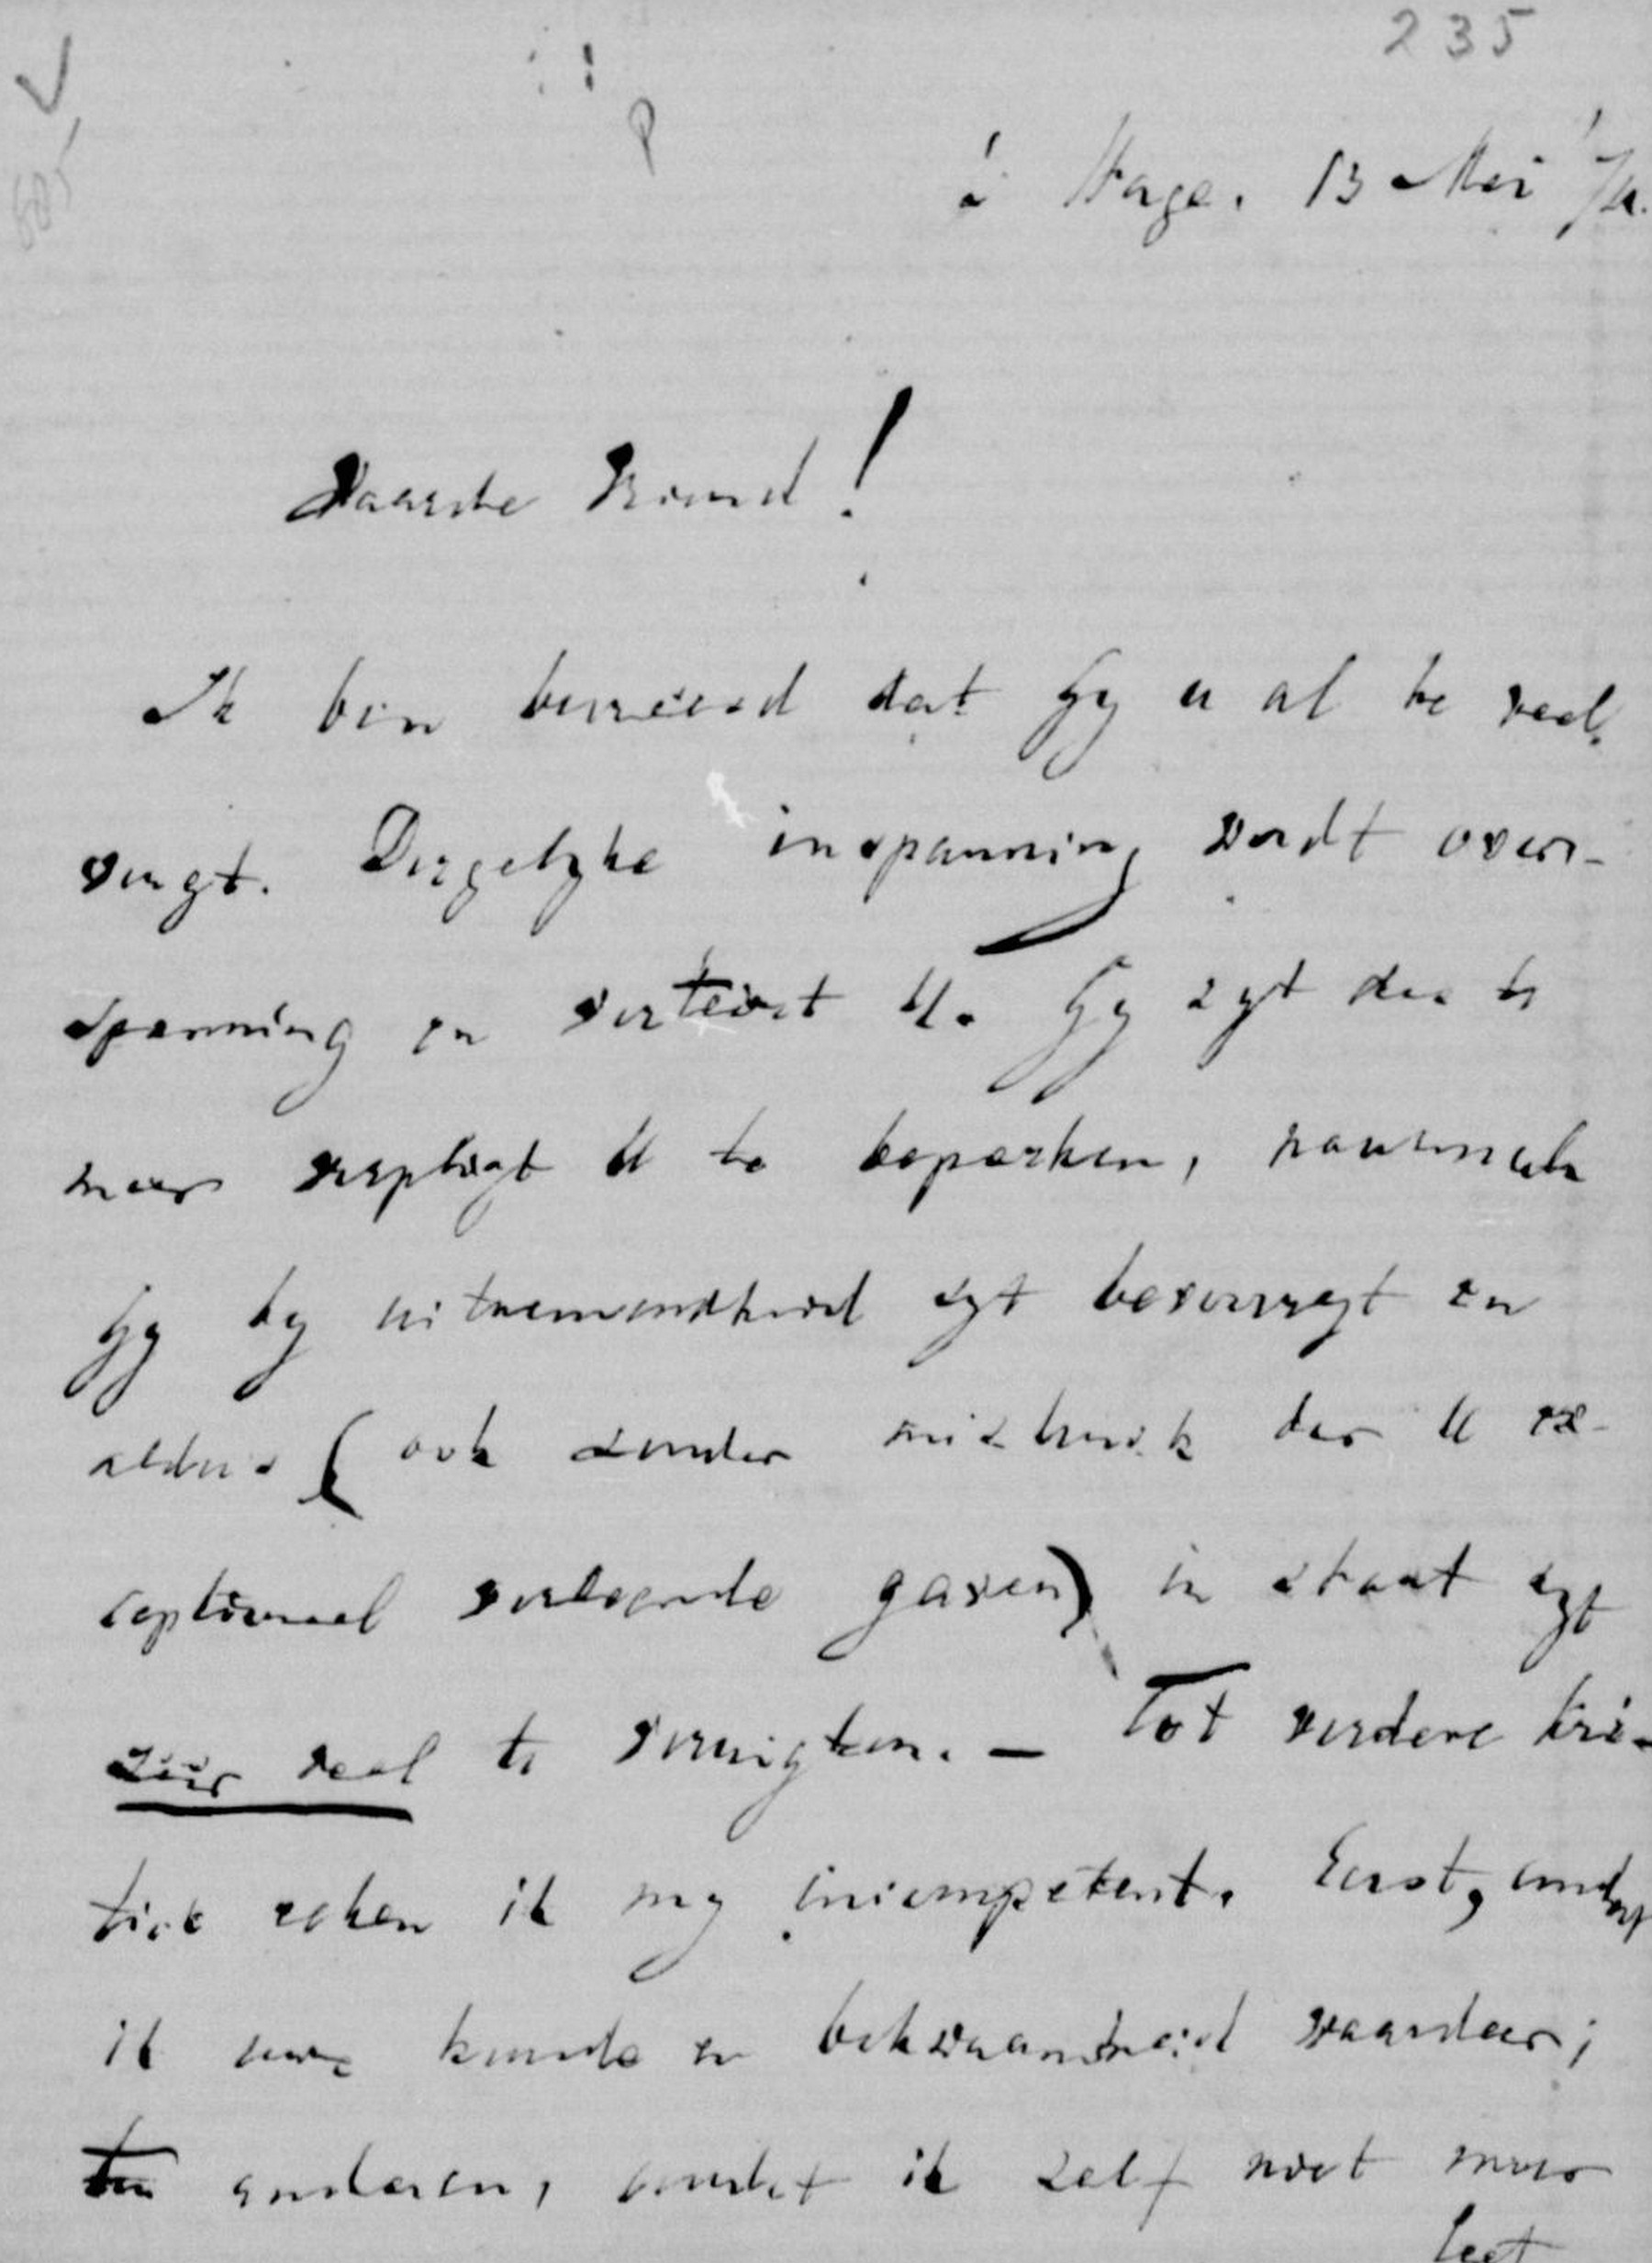 235
's Hage. 13 Mei
Waarde Vriend!
Ik ben bevreesd dat Gy u al te veel
vergt. Dergelyke inspanning wordt over-
spanning en verteert U. Gy zyt des te
meer verpligt U te beperken, naarmate
Gy by uitnemendheid zyt bevoorregt en
aldus (ook zonder misbruik der U ex-
ceptioneel verleende gaven) in staat zyt
zéér veel te verrigten. — Tot verdere kri-
tiek reken ik my incompetent. Eerst, omdat
ik uwe kunde en bekwaamheid waardeer;
ten anderen, omdat ik zelf niet meer